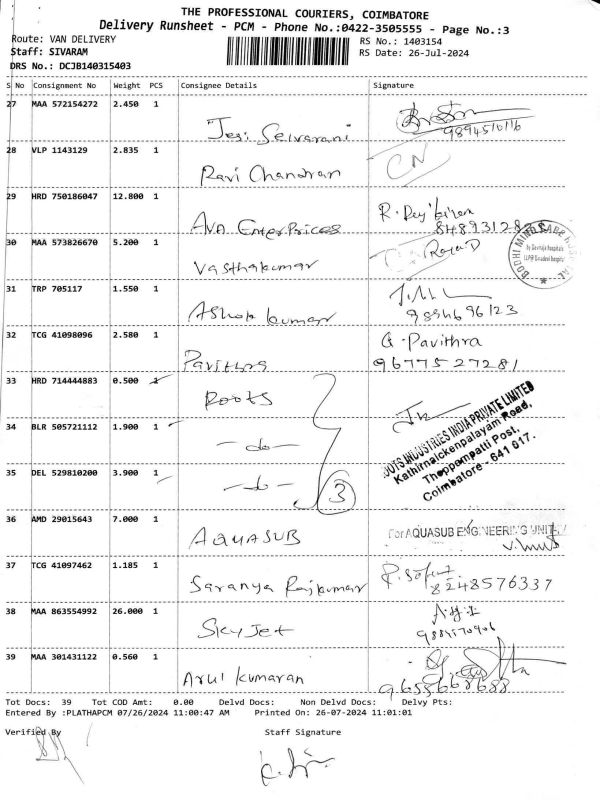 THE PROFESSIONAL COURIERS, COIMBATORE
Delivery Runsheet - PCM - Phone No.:0422-3505555 - Page No.:3
Route: VAN DELIVERY RS No.: 1403154
Staff: SIVARAM RS Date: 26-Jul-2024
DRS No.: DCJB140315403
S No Consignment No Weight PCS Consignee Details Signature
27 MAA 572154272 2.450 1
Jesi Selvarani
28 VLP 1143129 2.835 1
Ravi Chandran CN
29 HRD 750186047 12.800 1
AVA EnterPrices
30 MAA 573826670 5.200 1
Vasthakumar
31 TRP 705117 1.550 1
Ashok kumar 9894696123
32 TCG 41098096 2.580 1 G. Pavithra
Pavithra 9677527281
33 HRD 714444883 0.500 1 Roots
34 BLR 505721112 1.900 1 -do-
ROOTS INDUSTRIES INDIA PRIVATE LIMITED
Kathirnaickenpalayam Road,
Thoppampatti Post,
Coimbatore - 641 017.
35 DEL 529810200 3.900 1 -do- 3
36 AMD 29015643 7.000 1
AQUASUB For AQUASUB ENGINEERING UNIT
37 TCG 41097462 1.185 1
Saranya Rajkumar 8248576337
38 MAA 863554992 26.000 1
SkyJet
39 MAA 301431122 0.560 1
Arul kumaran 9655668688
Tot Docs: 39 Tot COD Amt: 0.00 Delvd Docs: Non Delvd Docs: Delvy Pts:
Entered By :PLATHAPCM 07/26/2024 11:00:47 AM Printed On: 26-07-2024 11:01:01
Verified By Staff Signature